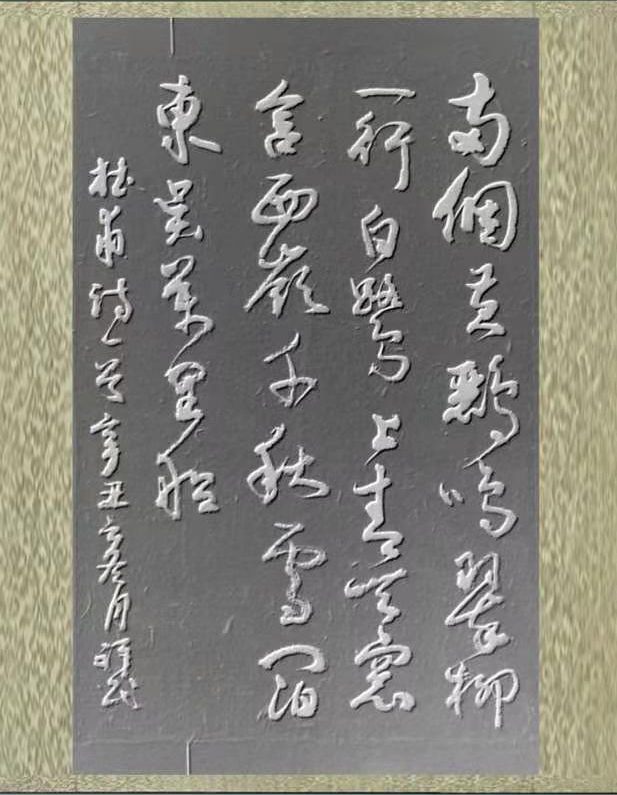 両個黄鸝鳴翠柳
一行白鷺上青天窓
含西嶺千秋雪門泊
東吳萬里船
杜甫詩一首辛丑彥月